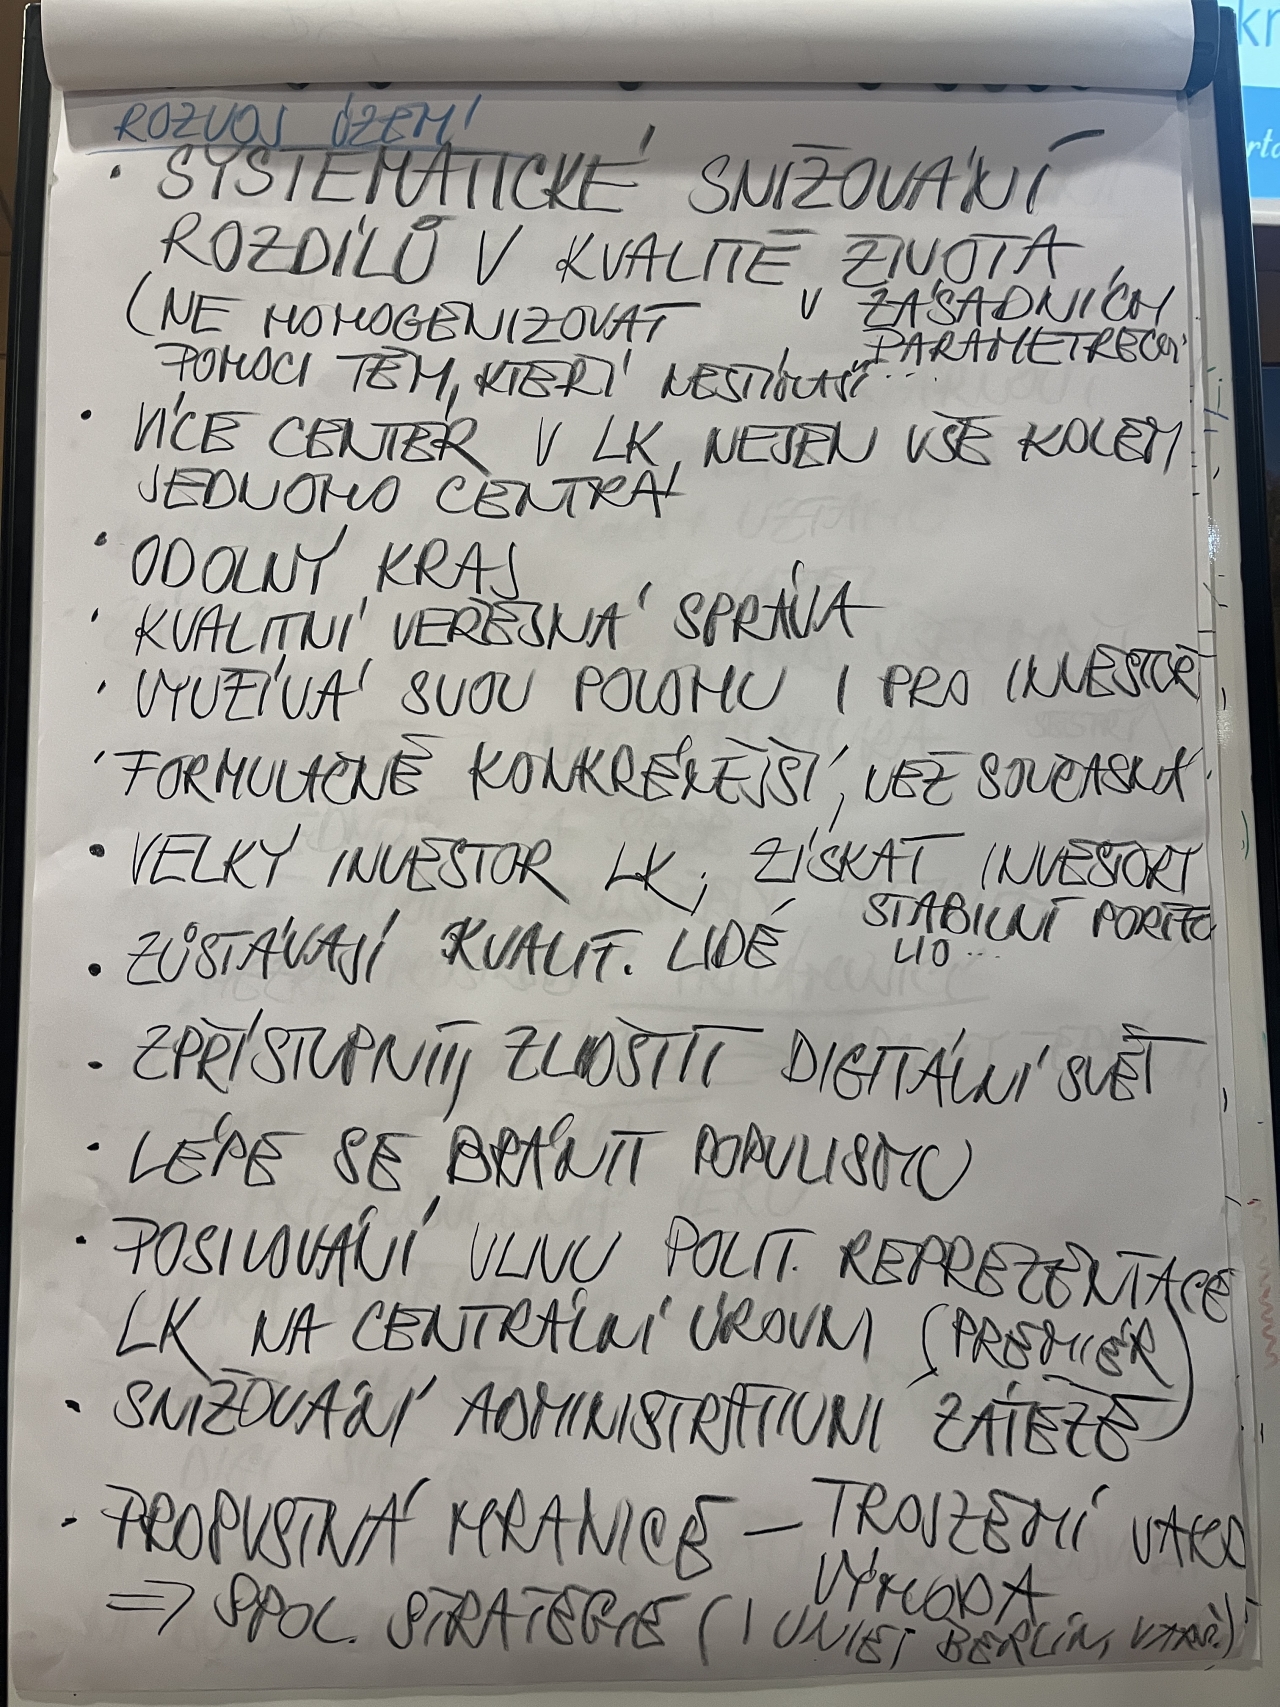 ROZVOJ ÚZEMÍ
· SYSTEMATICKÉ SNIŽOVÁNÍ
ROZDÍLŮ V KVALITĚ ŽIVOTA
(NE HOMOGENIZOVAT V ZÁSADNÍCH
PARAMETRECH
POMOCI TĚM, KTEŘÍ NESTÍHAJÍ...
· VÍCE CENTER V LK, NEJEN VŠE KOLEM
JEDNOHO CENTRA
· ODOLNÝ KRAJ
· KVALITNÍ VEŘEJNÁ SPRÁVA
· VYUŽÍVÁ SVOU POLOHU I PRO INVESTORY
· FORMULAČNĚ KONKRÉTNĚJŠÍ, NEŽ SOUČASNÁ
· VELKÝ INVESTOR LK, ZÍSKAT INVESTORY
STABILNÍ PORTFO
LIO...
· ZŮSTÁVAJÍ KVALIT. LIDÉ
· ZPŘÍSTUPNIT, ZLIDŠTIT DIGITÁLNÍ SVĚT
· LÉPE SE BRÁNIT POPULISMU
· POSILOVÁNÍ VLIVU POLIT. REPREZENTACE
LK NA CENTRÁLNÍ ÚROVNI (PREMIÉR)
· SNIŽOVÁNÍ ADMINISTRATIVNÍ ZÁTĚŽE
· PROPUSTNÁ HRANICE – TROJZEMÍ JAKO
VÝHODA
=> SPOL. STRATEGIE (I BERLÍN,